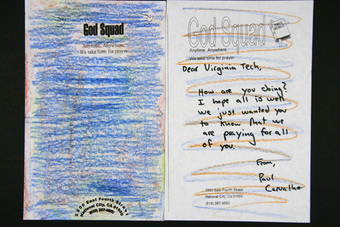 God Squad
Anytime, Anywhere.
We take time for prayer
2800 East Fourth Street
National City, CA 91950
God Squad
Anytime, Anywhere.
We take time for prayer
Dear Virginia Tech,
How are you doing?
I hope all is well
we just wanted you
to know that we
are praying for all
of you.
From,
Paul
Carvalho
National City, CA 91950